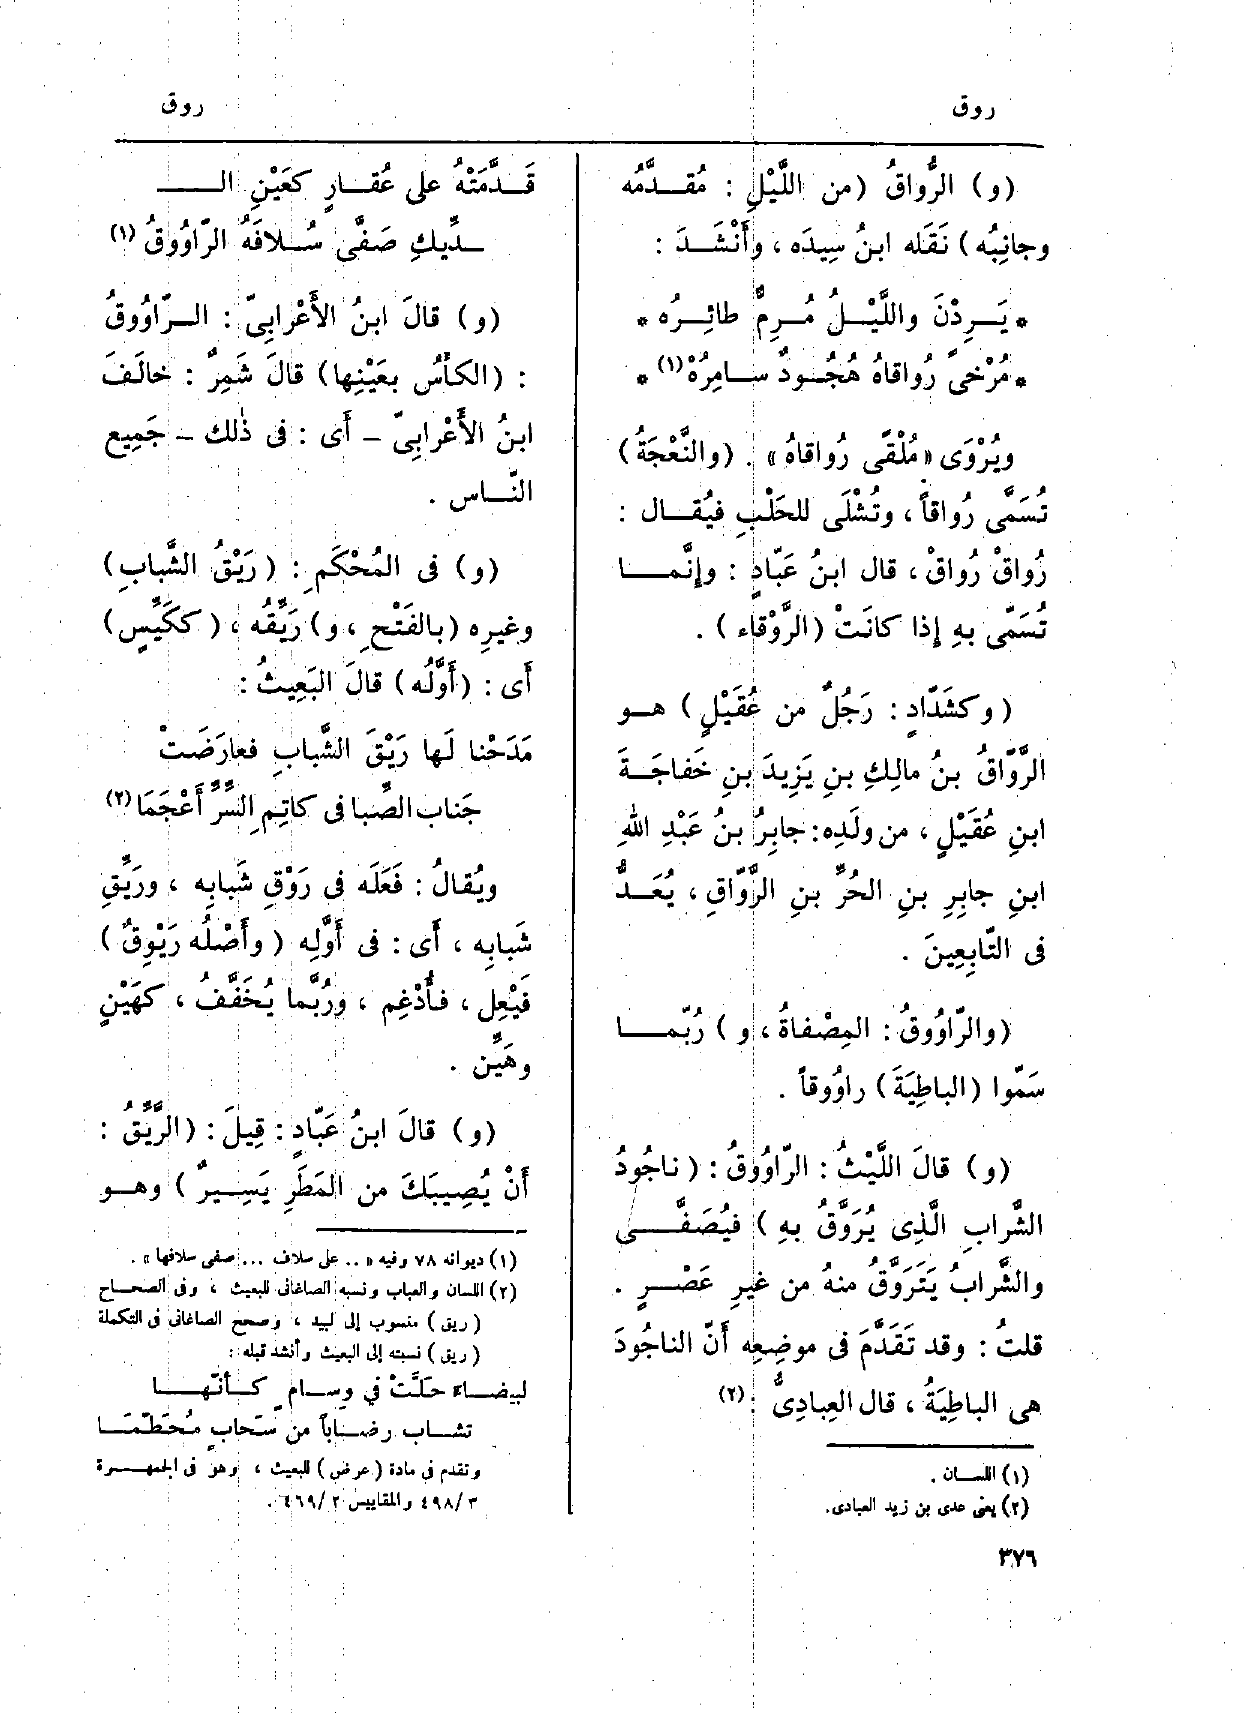 روق
روق
(و) الرُّواقُ (من اللَّيْلِ : مُقَدَّمُه
وجانِبُه) نَقَله ابنُ سِيدَه ، وأَنْشَدَ :
* يَرِدْنَ واللَّيْلُ مُرِمٌّ طائِرُه *
* مُرْخًى رُواقاهُ هُجُودٌ سامِرُهْ (١) *
ويُرْوَى «مُلْقًى رُواقاهُ» . (والنَّعْجَةُ)
تُسَمَّى رُواقاً ، وتُشْلَى للحَلْبِ فيُقال :
رُواقْ رُواقْ ، قال ابنُ عَبّادٍ : وإِنَّما
تُسَمّى بهِ إِذا كانَتْ (الرَّوْقاء) .
(وكشَدّادٍ : رَجُلٌ من عُقَيْلٍ) هو
الرَّوّاقُ بنُ مالِكِ بنِ يَزِيدَ بنِ خَفاجَةَ
ابنِ عُقَيْلٍ ، من ولَدِه : جابِرُ بنُ عَبْدِ اللهِ
ابنِ جابِرِ بنِ الحُرِّ بنِ الرَّوّاقِ ، يُعَدُّ
فى التّابِعِينَ .
(والرّاوُوقُ : المِصْفاةُ ، و) رُبّما
سَمَّوا (الباطِيَةَ) راوُوقاً .
(و) قالَ اللَّيْثُ : الرّاوُوقُ : (ناجُودُ
الشَّرابِ الَّذِى يُرَوَّقُ بهِ) فيُصَفَّى
والشَّرابُ يَتَرَوَّقُ منهُ من غيرِ عَصْرٍ .
قلتُ : وقد تَقَدَّمَ فى موضِعِه أَنّ الناجُودَ
هى الباطِيَةُ ، قال العِبادِىُّ : (٢)
(١) اللسان .
(٢) يعنى عدى بن زيد العبادى.
٣٧٦
قَدَّمَتْهُ على عُقارٍ كعَيْنِ الـ
ـدِّيكِ صَفَّى سُلافَهُ الرّاوُوقُ (١)
(و) قالَ ابنُ الأَعْرابِىّ : الرّاوُوقُ
: (الكأْسُ بعَيْنِها) قالَ شَمِرٌ : خالَفَ
ابنُ الأَعْرابِىّ – أَى : فى ذٰلك – جَمِيع
النّاس .
(و) فى المُحْكَمِ : (رَيْقُ الشَّبابِ)
وغيرِه (بالفَتْحِ ، و) رَيِّقُه ، (ككَيِّسٍ)
أَى : (أَوَّلُه) قالَ البَعِيثُ :
مَدَحْنا لَها رَيْقَ الشَّبابِ فعارَضَتْ
جَنابَ الصِّبا فى كاتِمِ السِّرِّ أَعْجَمَا (٢)
ويُقالُ : فَعَلَه فى رَوْقِ شَبابِه ، ورَيِّقِ
شَبابِه ، أَى : فى أَوَّلِه (وأَصْلُه رَيْوِقٌ)
فَيْعِل ، فأُدْغِم ، ورُبَّما يُخَفَّفُ ، كهَيْنٍ
وهَيِّن .
(و) قالَ ابنُ عَبّادٍ : قِيلَ : (الرَّيِّقُ :
أَنْ يُصِيبَكَ من المَطَرِ يَسِيرٌ) وهو
(١) ديوانه ٧٨ وفيه « .. على سلاف ... صفى سلافها » .
(٢) اللسان والعباب ونسبه الصاغانى للبعيث ، وفى الصحاح
(ريق) منسوب إلى لبيد ، وصحح الصاغانى فى التكملة
(ريق) نسبته إلى البعيث وأنشد قبله :
لبيضاء حلَّتْ في وسامٍ كأنّها
تشاب رضاباً من سَحابٍ مُحَطَّمَا
وتقدم فى مادة (عرض) للبعيث ، وهو فى الجمهرة
٤٩٨/٣ والمقاييس ٤٦٩/٢ .